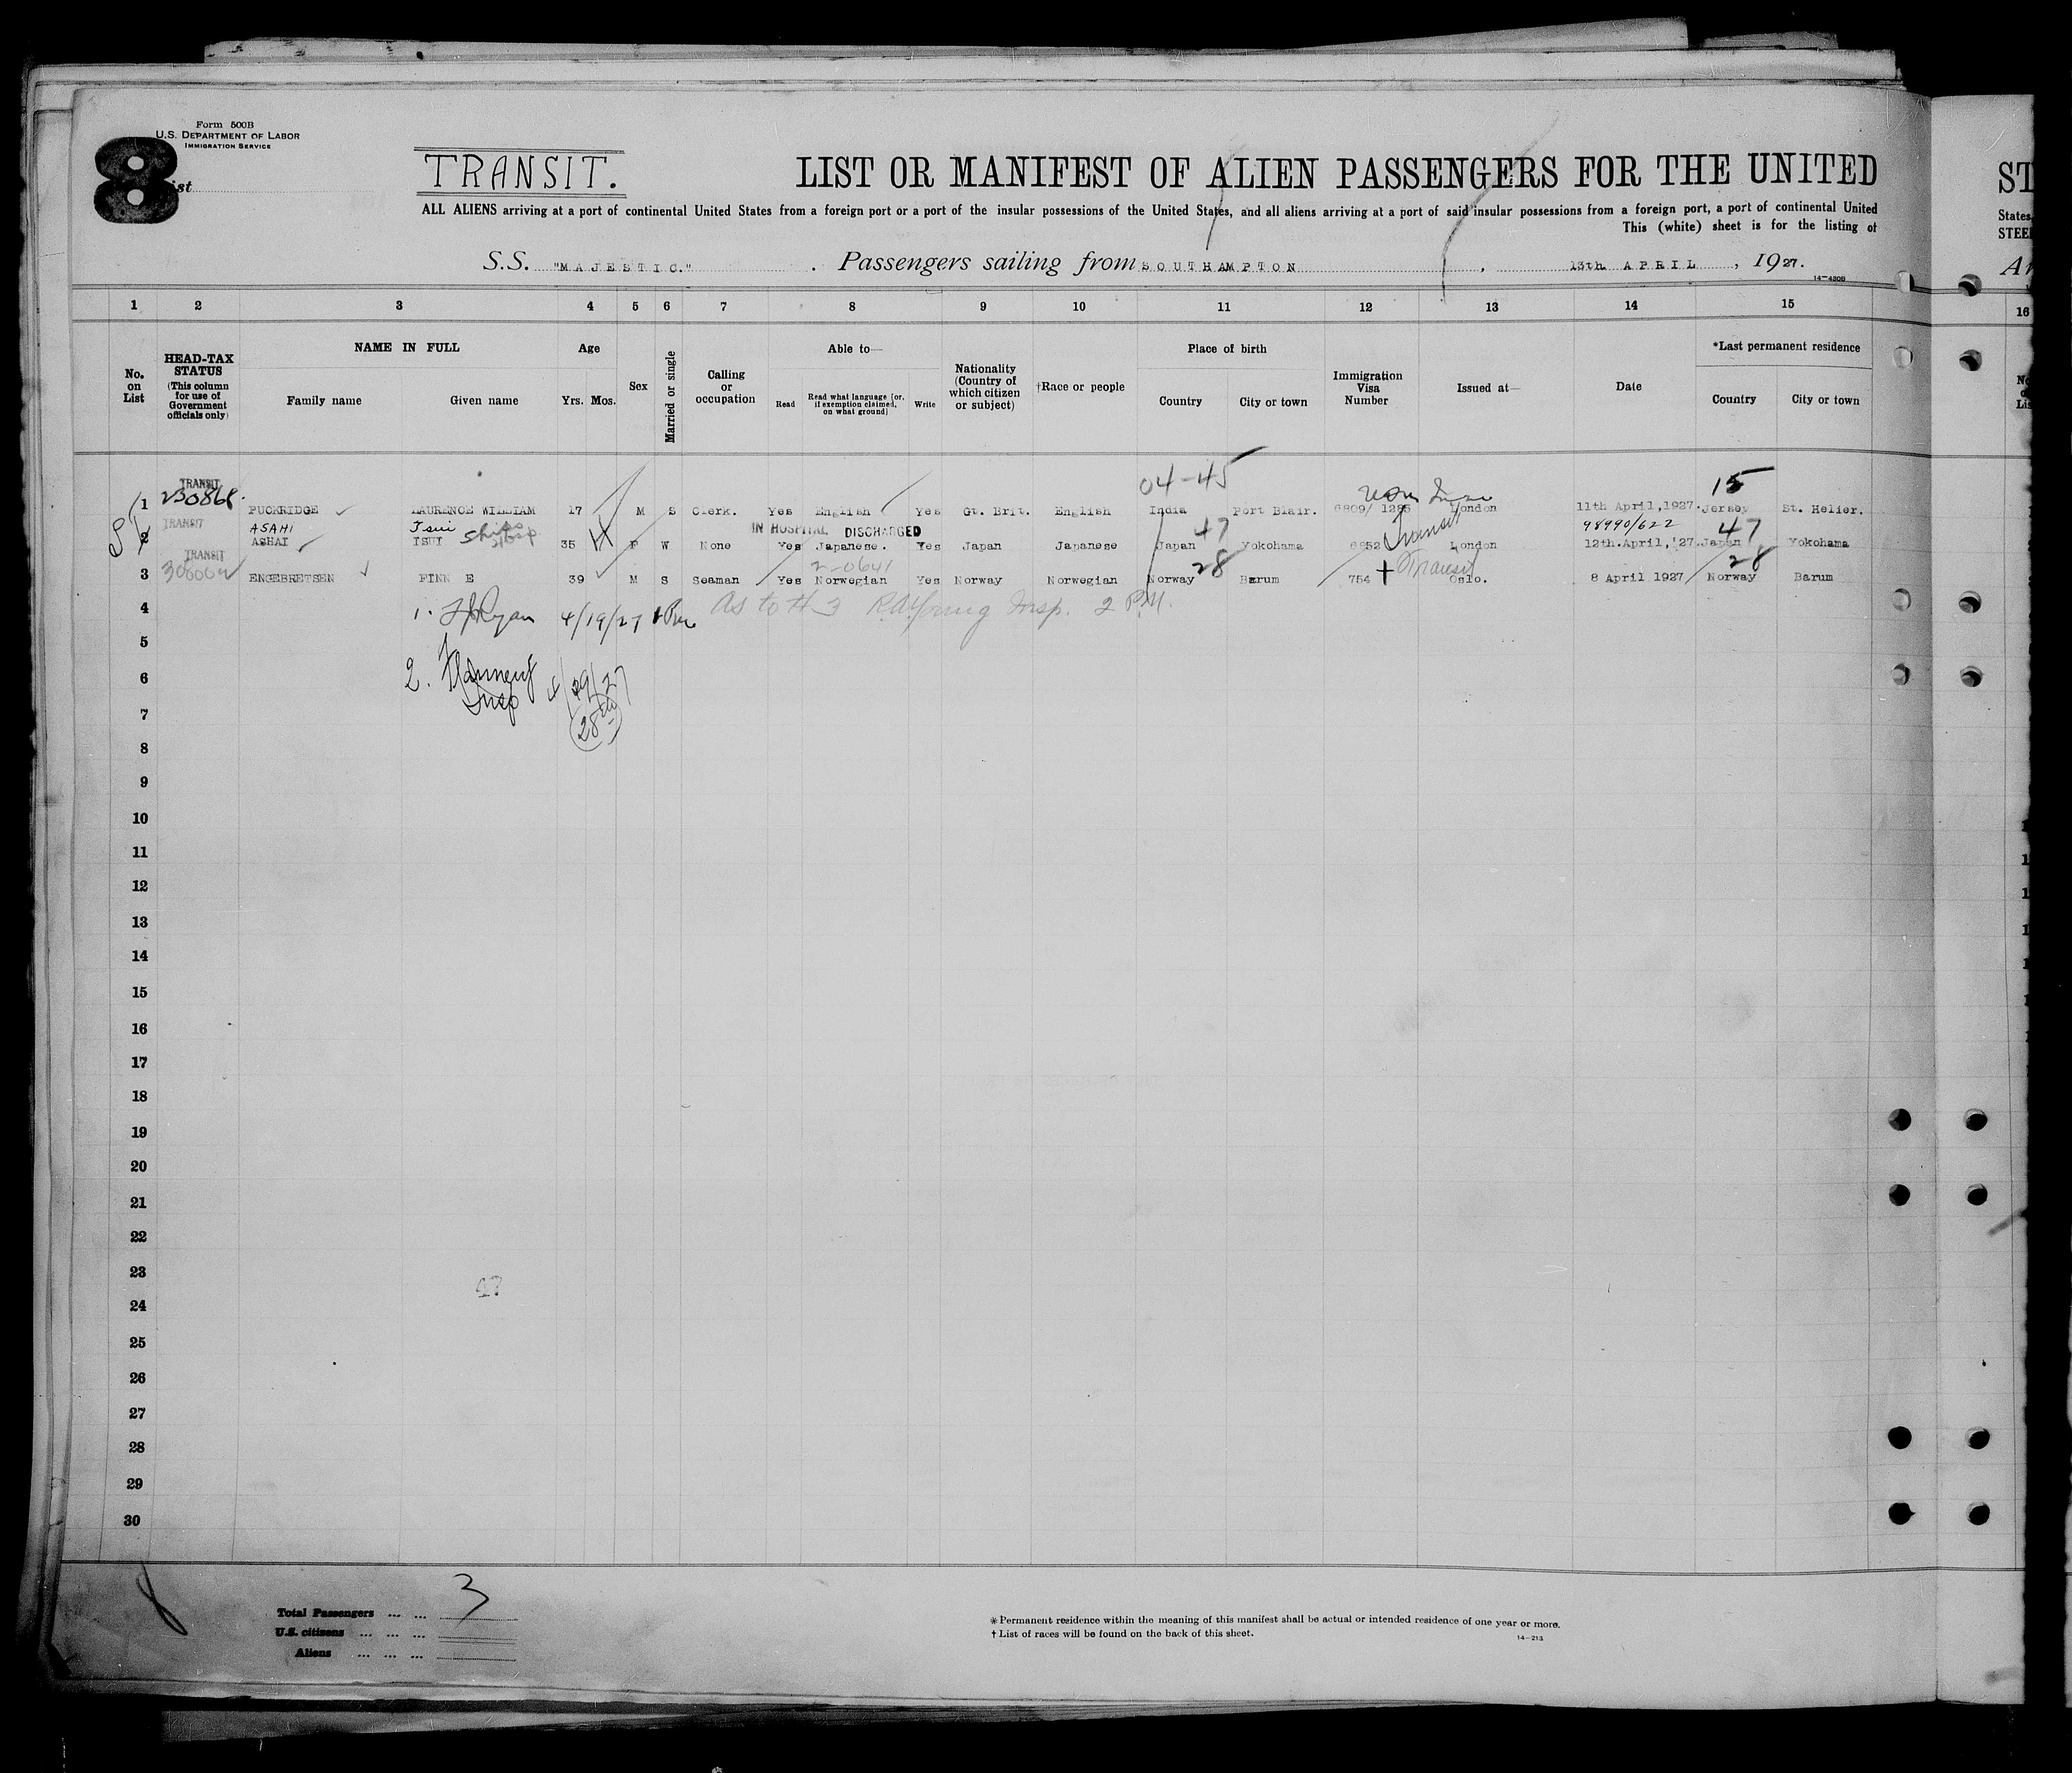 Form 500B
U.S. DEPARTMENT OF LABOR
IMMIGRATION SERVICE
8
TRANSIT.
LIST OR MANIFEST OF ALIEN PASSENGERS FOR THE UNITED
ALL ALIENS arriving at a port of continental United States from a foreign port or a port of the insular possessions of the United States, and all aliens arriving at a port of said insular possessions from a foreign port, a port of continental United
This (white) sheet is for the listing of
S.S. "MAJESTIC." . Passengers sailing from SOUTHAMPTON , 13th APRIL , 1927.
14-430B
1 2 3 4 5 6 7 8 9 10 11 12 13 14 15
No. on List
HEAD-TAX STATUS (This column for use of Government officials only)
NAME IN FULL
Family name Given name
Age
Yrs. Mos.
Sex
Married or single
Calling or occupation
Able to—
Read Read what language [or, if exemption claimed, on what ground] Write
Nationality (Country of which citizen or subject)
†Race or people
Place of birth
Country City or town
Immigration Visa Number
Issued at—
Date
*Last permanent residence
Country City or town
04-45 15
TRANSIT
1 230868. PUCKRIDGE LAURENCE WILLIAM 17 M S Clerk. Yes English Yes Gt. Brit. English India Port Blair. 6809/ 1285 London 11th April,1927. Jersey St. Helier.
TRANSIT ASAHI Tsui IN HOSPITAL DISCHARGED 47 Transit 98990/622 47
2 ASHAI ISUI 35 F W None Yes Japanese. Yes Japan Japanese Japan Yokohama 6852 London 12th.April,'27. Japan Yokohama
TRANSIT 2-0641 28 Transit 28
3 ENGEBRETSEN FINN E 39 M S Seaman Yes Norwegian Yes Norway Norwegian Norway Bærum 754 Oslo. 8 April 1927 Norway Barum
4 1. Ryan 4/19/27 As to #3 R.A. Young Insp. 2 P.M.
5
6 2. Insp 4/29/27
7 28th
8
9
10
11
12
13
14
15
16
17
18
19
20
21
22
23
24
25
26
27
28
29
30
Total Passengers ... ... 3
U.S. citizens ... ... ...
Aliens ... ... ...
*Permanent residence within the meaning of this manifest shall be actual or intended residence of one year or more.
† List of races will be found on the back of this sheet.
14-213
ST
States
STEE
16